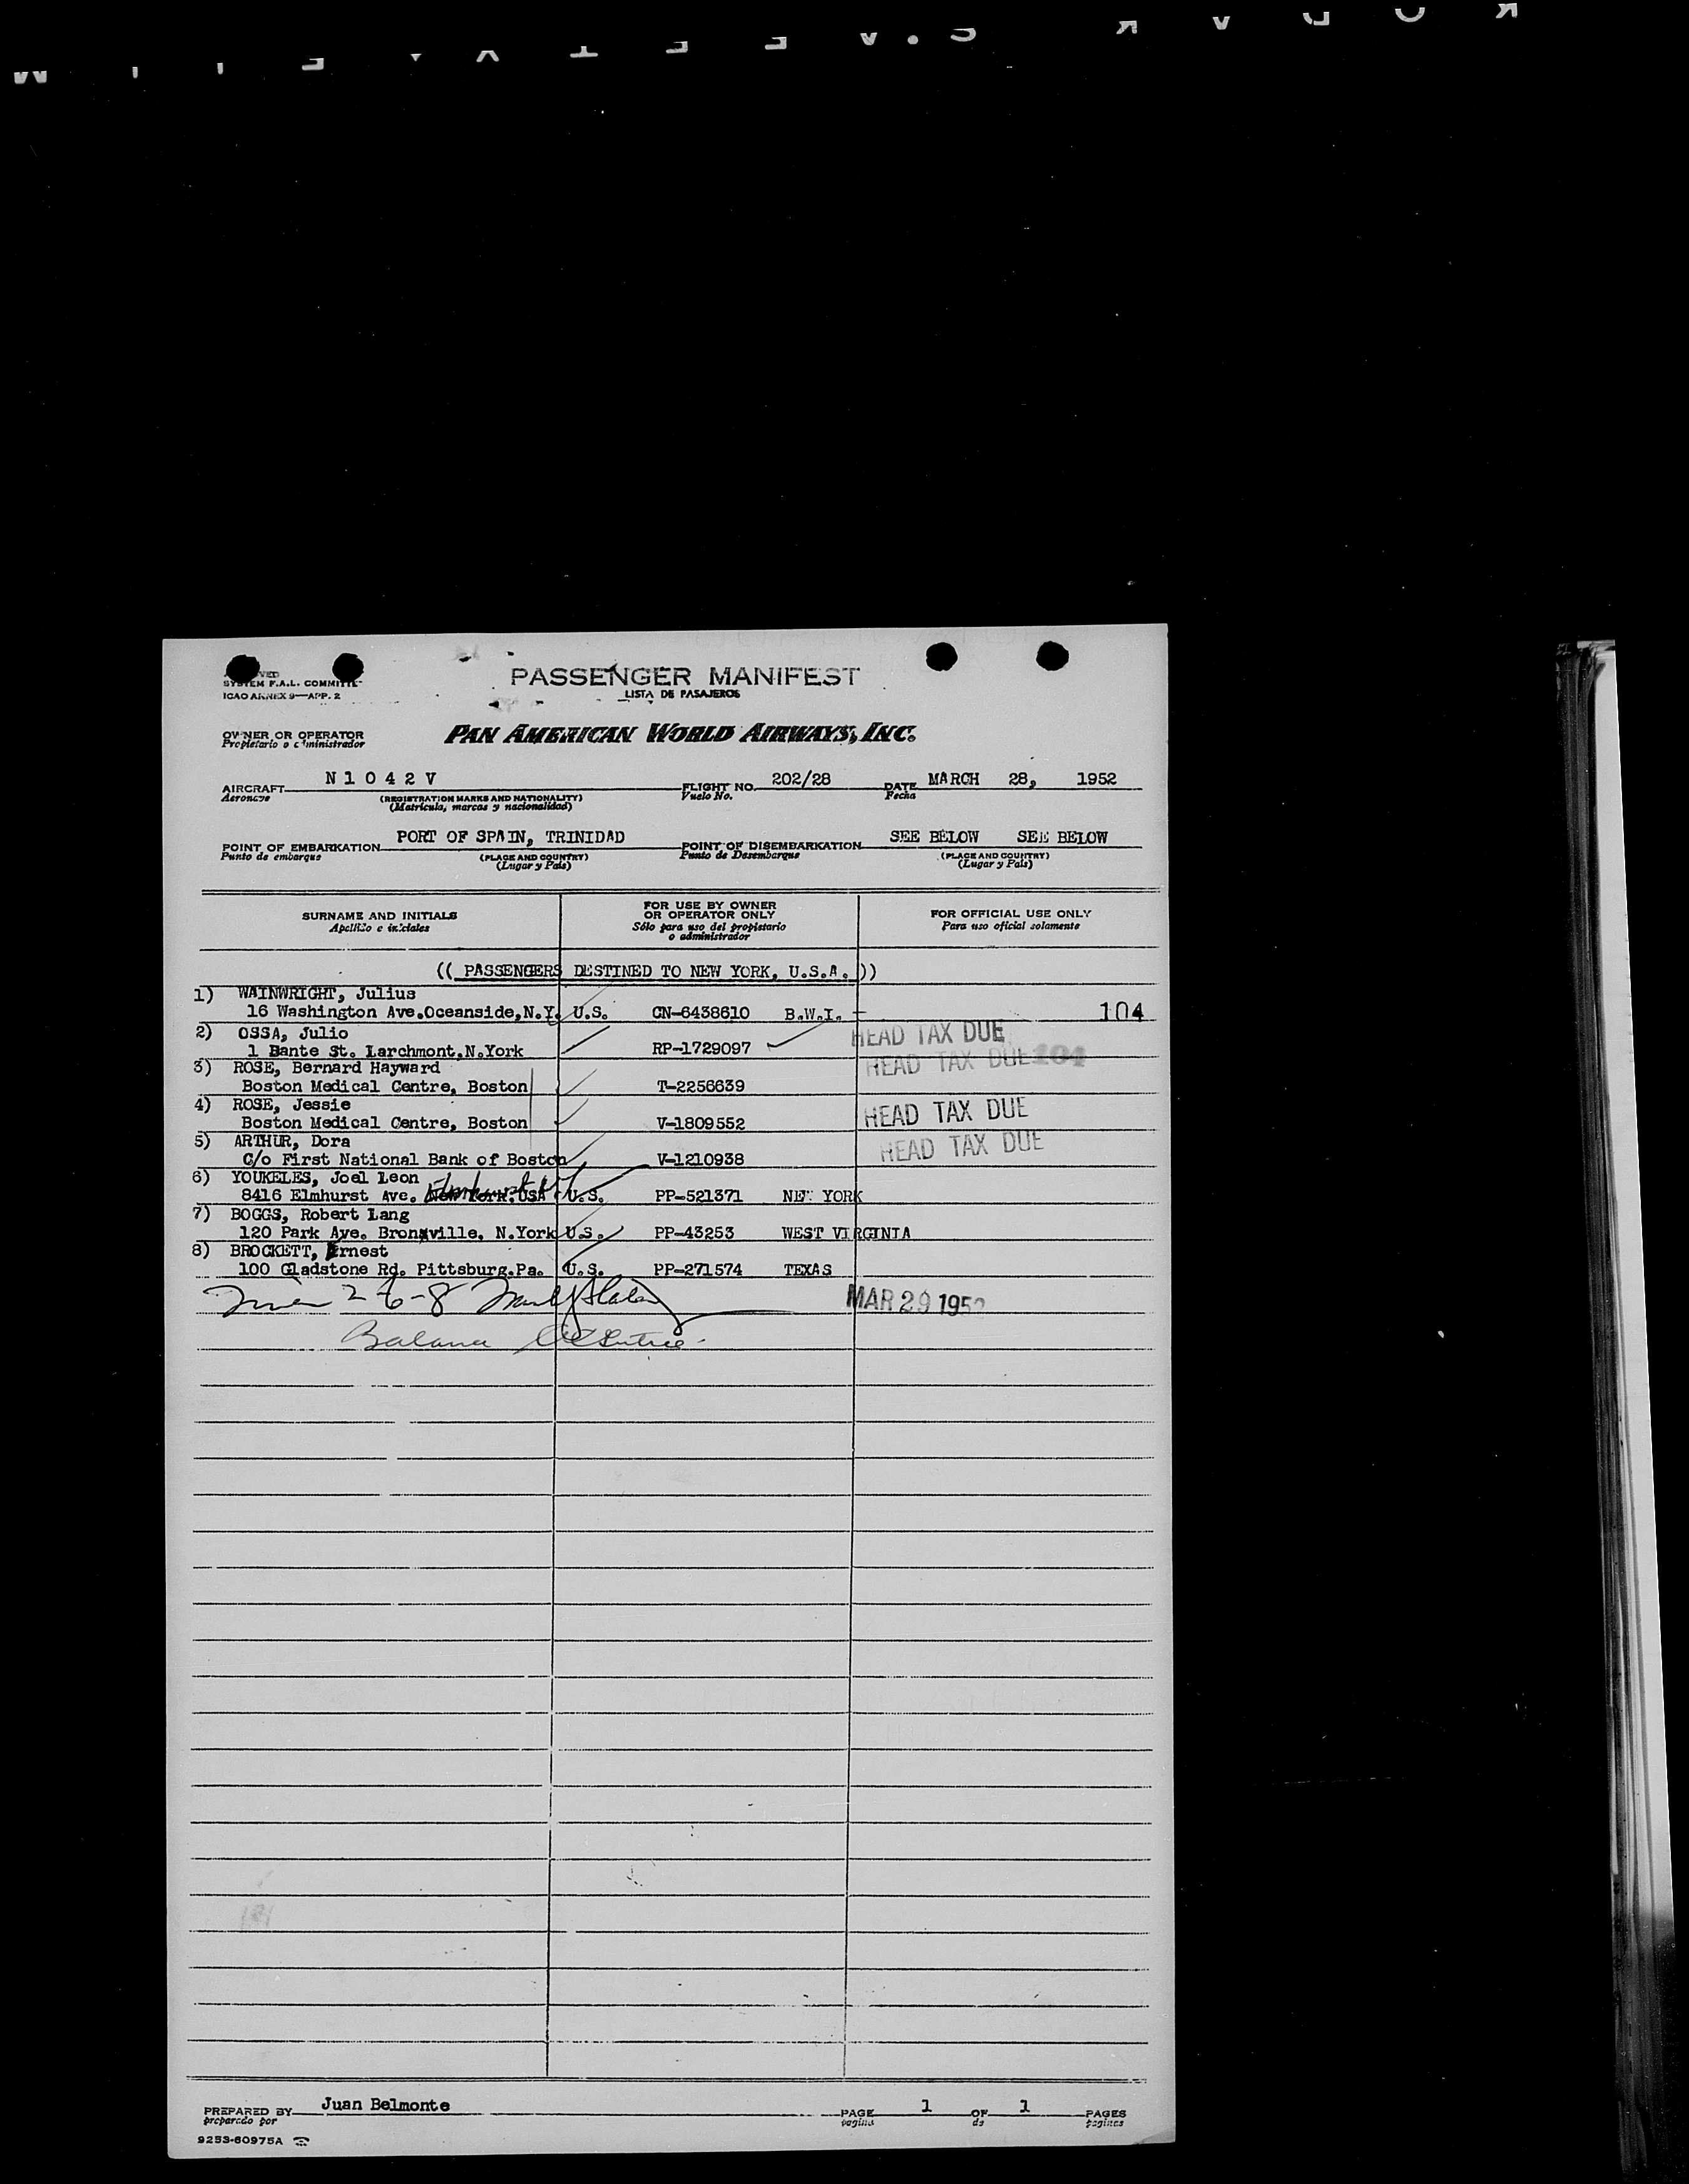 SYSTEM F.A.L. COMMITTE
ICAO ANNEX 9—APP. 2
PASSENGER MANIFEST
LISTA DE PASAJEROS
OWNER OR OPERATOR
Propietario o administrador
PAN AMERICAN WORLD AIRWAYS, INC.
AIRCRAFT N 1 0 4 2 V FLIGHT NO. 202/28 DATE MARCH 28, 1952
Aeronave (REGISTRATION MARKS AND NATIONALITY) Vuelo No. Fecha
(Matrícula, marcas y nacionalidad)
POINT OF EMBARKATION PORT OF SPAIN, TRINIDAD POINT OF DISEMBARKATION SEE BELOW SEE BELOW
Punto de embarque (PLACE AND COUNTRY) Punto de Desembarque (PLACE AND COUNTRY)
(Lugar y País) (Lugar y País)
SURNAME AND INITIALS
Apellido e iniciales
FOR USE BY OWNER
OR OPERATOR ONLY
Sólo para uso del propietario
o administrador
FOR OFFICIAL USE ONLY
Para uso oficial solamente
(( PASSENGERS DESTINED TO NEW YORK, U.S.A. ))
1) WAINWRIGHT, Julius
16 Washington Ave.Oceanside,N.Y. U.S. CN-6438610 B.W.I. 104
2) OSSA, Julio HEAD TAX DUE
1 Dante St. Larchmont,N.York RP-1729097
3) ROSE, Bernard Hayward HEAD TAX DUE 104
Boston Medical Centre, Boston T-2256639
4) ROSE, Jessie HEAD TAX DUE
Boston Medical Centre, Boston V-1809552
5) ARTHUR, Dora HEAD TAX DUE
C/o First National Bank of Boston V-1210938
6) YOUKELES, Joel Leon
8416 Elmhurst Ave. New York.USA Elmhurst U.S. PP-521371 NEW YORK
7) BOGGS, Robert Lang
120 Park Ave. Bronxville, N.York U.S. PP-43253 WEST VIRGINIA
8) BROCKETT, Ernest
100 Gladstone Rd. Pittsburg.Pa. U.S. PP-271574 TEXAS
2 6-8 MAR 29 1952
Balance
PREPARED BY Juan Belmonte PAGE 1 OF 1 PAGES
preparado por pagina de paginas
9253-60975A